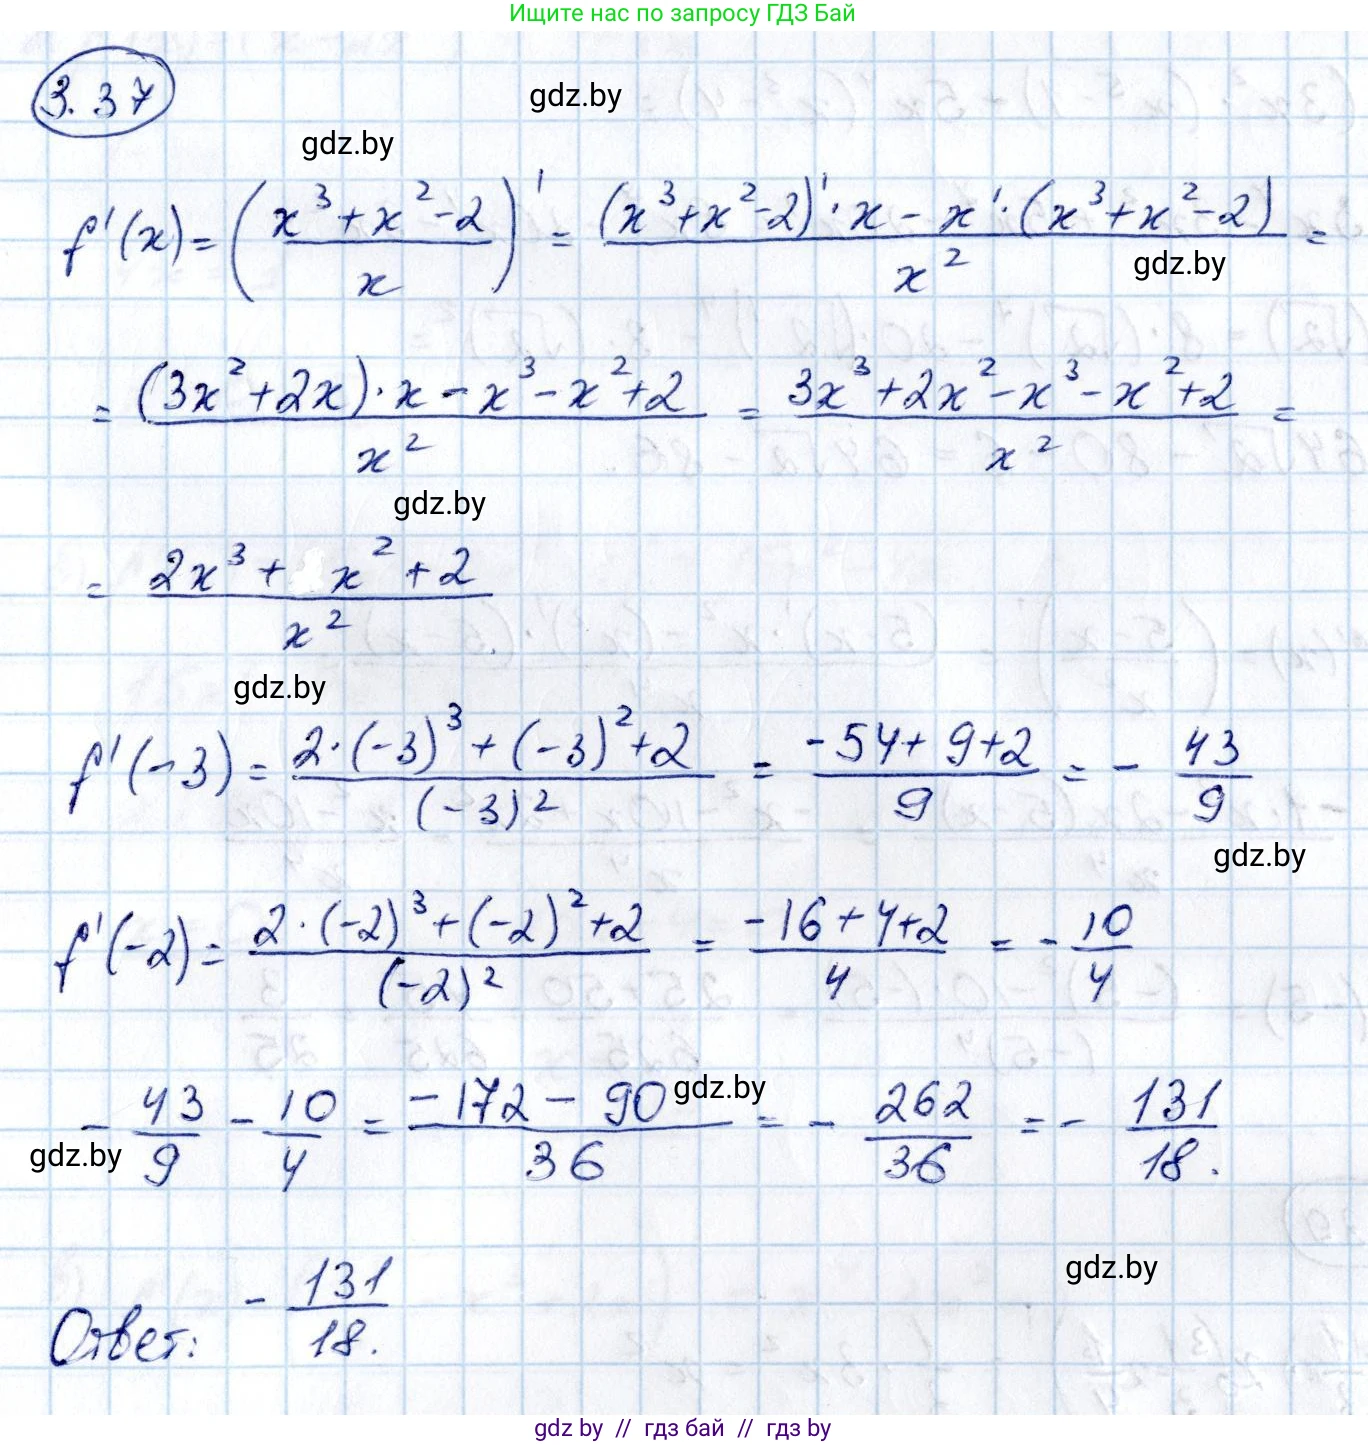 Ищите нас по запросу ГДЗ Бай
3.37
gdz.by
gdz.by
f'(x) = ((x³+x²-2)/x)' = ((x³+x²-2)'·x - x'·(x³+x²-2))/x² =
gdz.by
= ((3x²+2x)·x - x³-x²+2)/x² = (3x³+2x²-x³-x²+2)/x² =
gdz.by
= (2x³+x²+2)/x²
gdz.by
f'(-3) = (2·(-3)³+(-3)²+2)/(-3)² = (-54+9+2)/9 = - 43/9
gdz.by
f'(-2) = (2·(-2)³+(-2)²+2)/(-2)² = (-16+4+2)/4 = - 10/4
- 43/9 - 10/4 = (-172 - 90)/36 = - 262/36 = - 131/18.
gdz.by
gdz.by
gdz.by
Ответ: - 131/18.
gdz by // гдз бай // гдз by